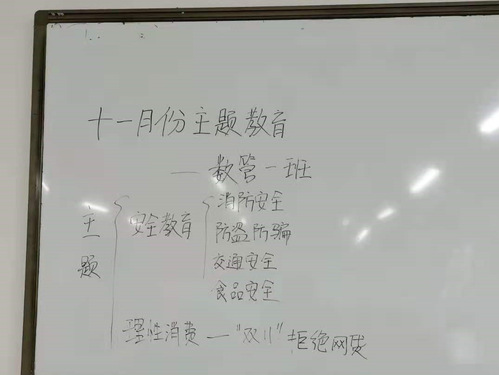 十一月份主题教育
——数管一班
主题
安全教育
消防安全
防盗防骗
交通安全
食品安全
理性消费—"双11"拒绝网贷